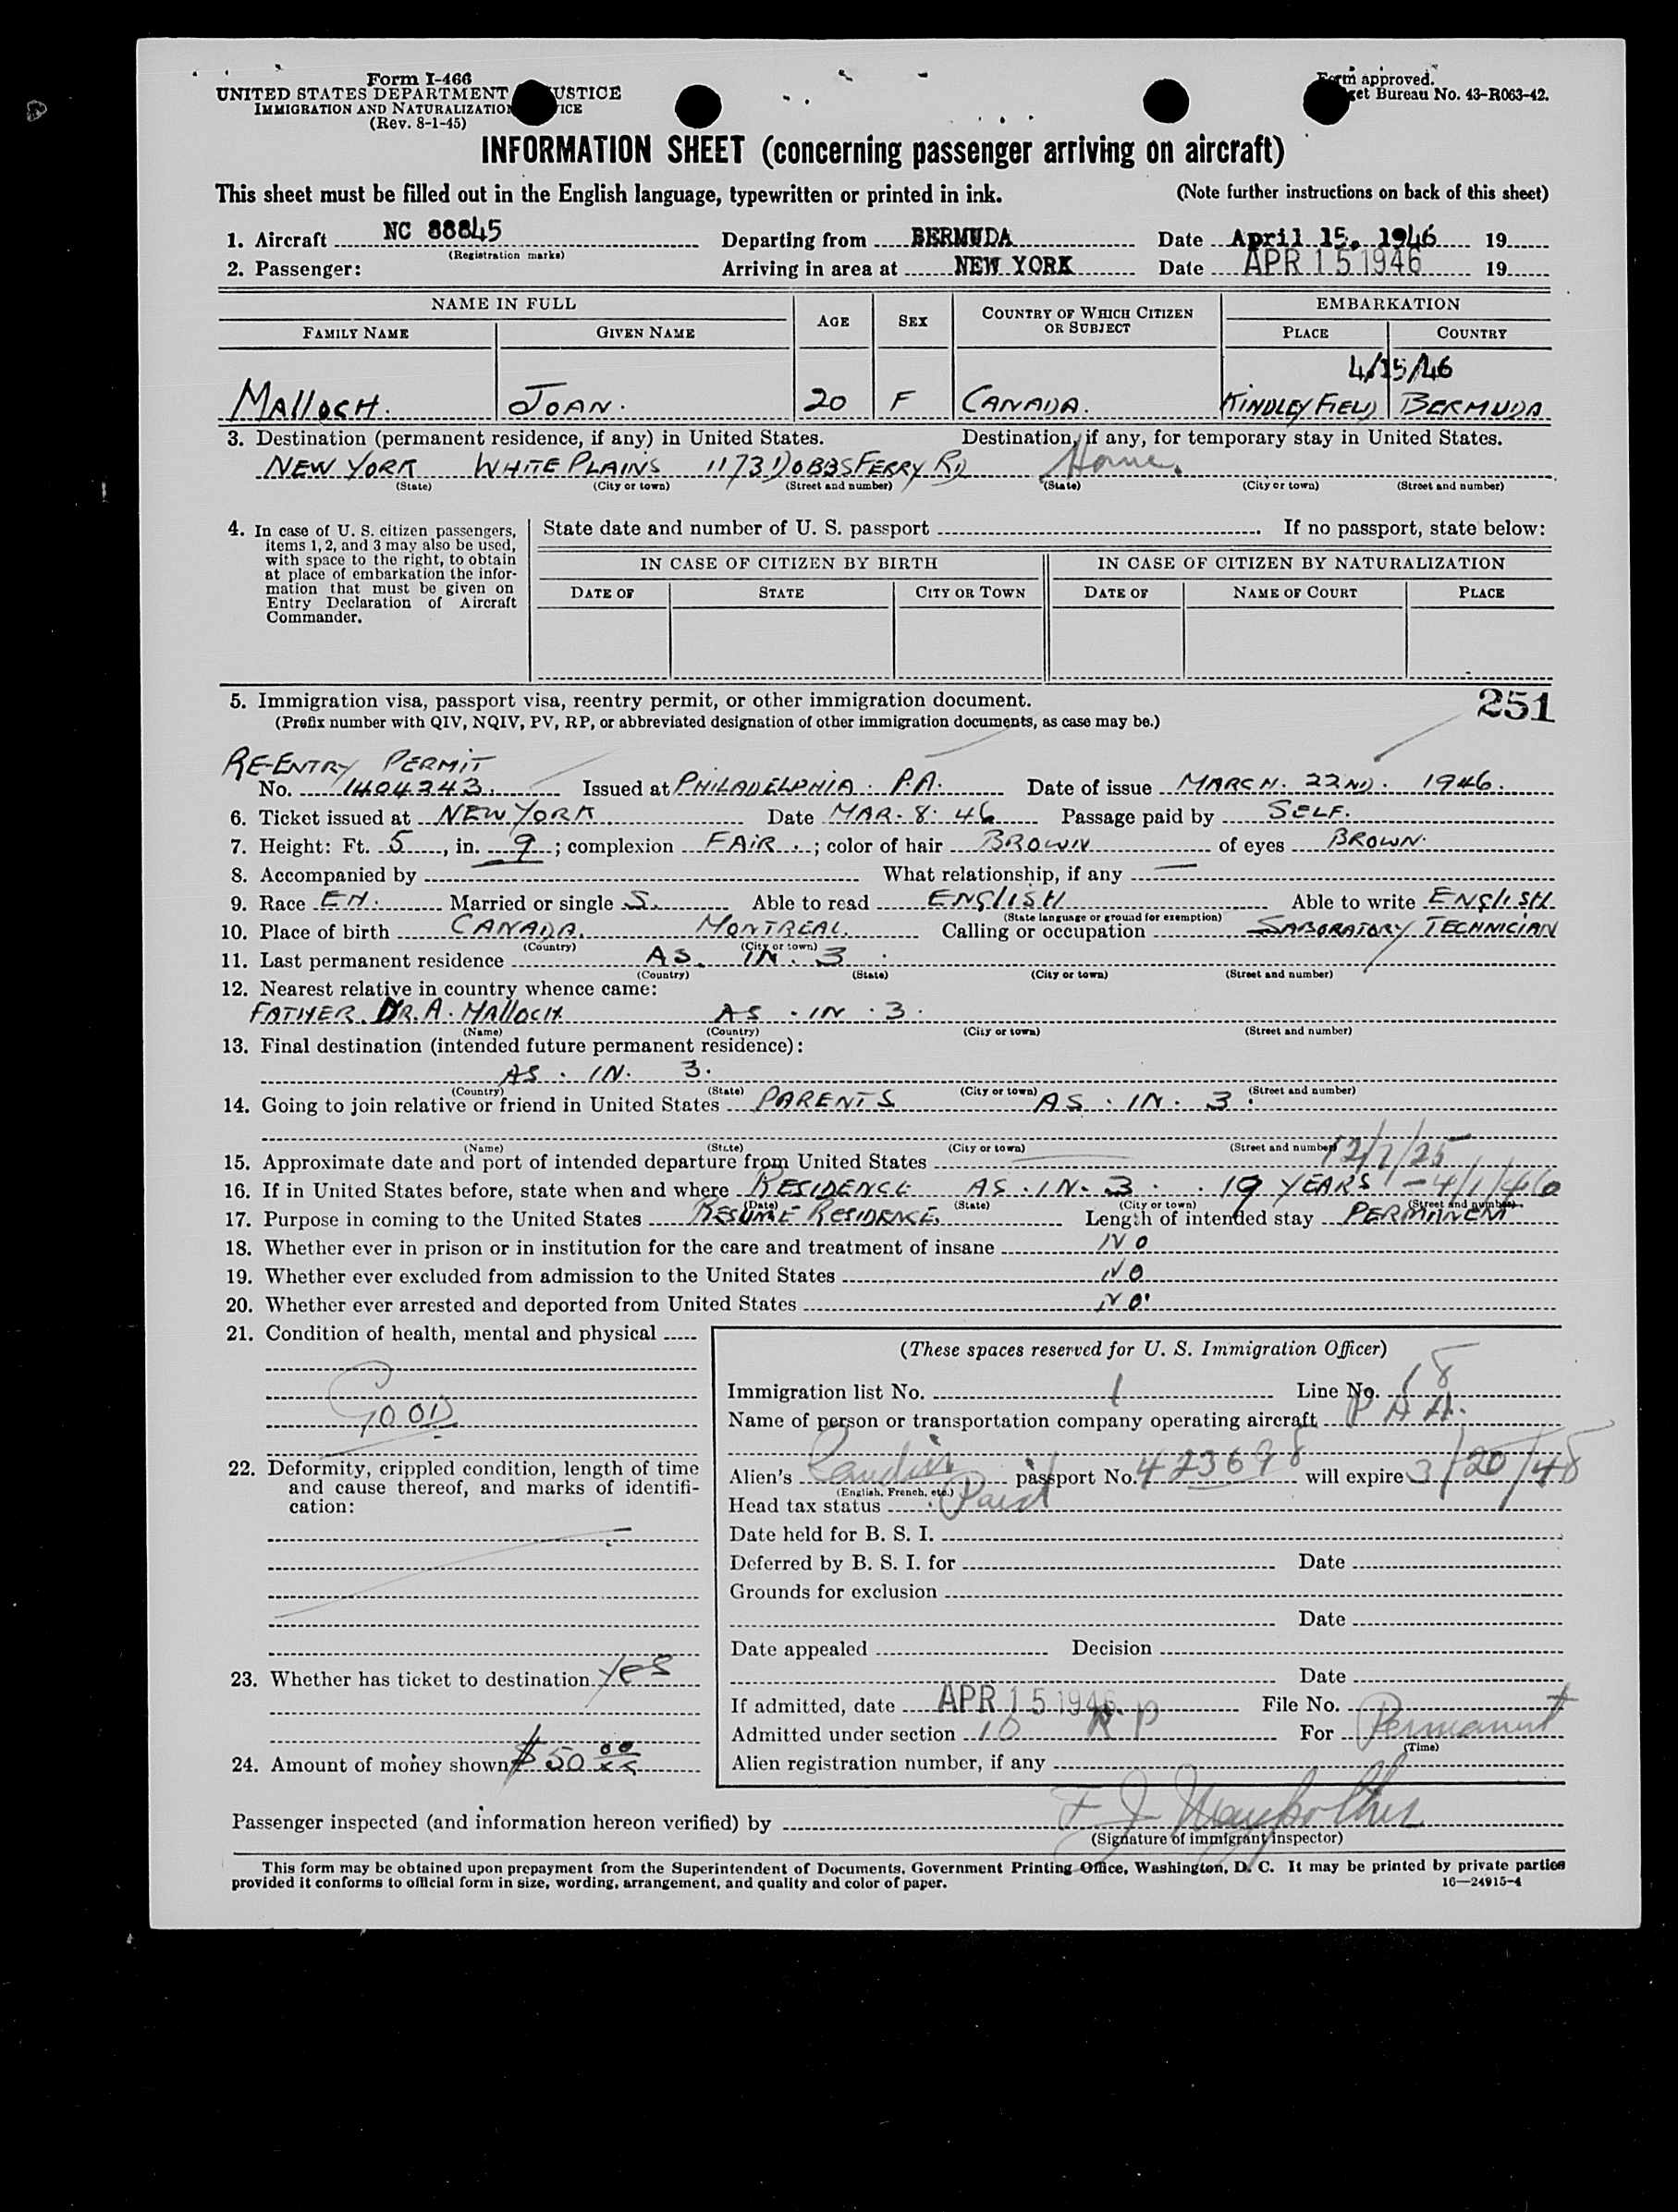 Form I-466
UNITED STATES DEPARTMENT USTICE
IMMIGRATION AND NATURALIZATION ICE
(Rev. 8-1-45)
Form approved.
get Bureau No. 43-R063-42.
INFORMATION SHEET (concerning passenger arriving on aircraft)
This sheet must be filled out in the English language, typewritten or printed in ink. (Note further instructions on back of this sheet)
1. Aircraft NC 88845 Departing from BERMUDA Date April 15, 1946 19
(Registration marks)
2. Passenger: Arriving in area at NEW YORK Date APR 15 1946 19
NAME IN FULL AGE SEX COUNTRY OF WHICH CITIZEN OR SUBJECT EMBARKATION
FAMILY NAME GIVEN NAME PLACE COUNTRY
4/15/46
MALLOCH. JOAN. 20 F CANADA. KINDLEY FIELD BERMUDA
3. Destination (permanent residence, if any) in United States. Destination, if any, for temporary stay in United States.
NEW YORK WHITE PLAINS 1173 DOBBS FERRY RD Home.
(State) (City or town) (Street and number) (State) (City or town) (Street and number)
4. In case of U. S. citizen passengers, items 1, 2, and 3 may also be used, with space to the right, to obtain at place of embarkation the information that must be given on Entry Declaration of Aircraft Commander.
State date and number of U. S. passport If no passport, state below:
IN CASE OF CITIZEN BY BIRTH IN CASE OF CITIZEN BY NATURALIZATION
DATE OF STATE CITY OR TOWN DATE OF NAME OF COURT PLACE
5. Immigration visa, passport visa, reentry permit, or other immigration document. 251
(Prefix number with QIV, NQIV, PV, RP, or abbreviated designation of other immigration documents, as case may be.)
RE-ENTRY PERMIT
No. 1404243. Issued at PHILADELPHIA. P.A. Date of issue MARCH. 22ND. 1946.
6. Ticket issued at NEW YORK Date MAR. 8. 46 Passage paid by SELF.
7. Height: Ft. 5, in. 9; complexion FAIR.; color of hair BROWN of eyes BROWN.
8. Accompanied by What relationship, if any —
9. Race EN. Married or single S. Able to read ENGLISH Able to write ENGLISH
(State language or ground for exemption)
10. Place of birth CANADA. MONTREAL. Calling or occupation LABORATORY TECHNICIAN
(Country) (City or town)
11. Last permanent residence AS. IN. 3.
(Country) (State) (City or town) (Street and number)
12. Nearest relative in country whence came:
FATHER. DR. A. MALLOCH AS. IN. 3.
(Name) (Country) (City or town) (Street and number)
13. Final destination (intended future permanent residence):
AS. IN. 3.
(Country) (State) (City or town) (Street and number)
14. Going to join relative or friend in United States PARENTS AS. IN. 3.
(Name) (State) (City or town) (Street and number)
15. Approximate date and port of intended departure from United States 12/7/25
16. If in United States before, state when and where RESIDENCE AS. IN. 3. 19 YEARS - 4/1/46
(Date) (State) (City or town) (Street and number)
17. Purpose in coming to the United States RESUME RESIDENCE. Length of intended stay PERMANENT
18. Whether ever in prison or in institution for the care and treatment of insane NO
19. Whether ever excluded from admission to the United States NO
20. Whether ever arrested and deported from United States NO.
21. Condition of health, mental and physical
GOOD
22. Deformity, crippled condition, length of time and cause thereof, and marks of identification:
23. Whether has ticket to destination Yes
24. Amount of money shown $50 00/xx
(These spaces reserved for U. S. Immigration Officer)
Immigration list No. 1 Line No. 18
Name of person or transportation company operating aircraft P A A.
Alien's passport No. 423698 will expire 3/20/48
(English, French, etc.)
Head tax status Paid
Date held for B. S. I.
Deferred by B. S. I. for Date
Grounds for exclusion
Date
Date appealed Decision
Date
If admitted, date APR 15 1946 File No.
Admitted under section 10 RP For Permanent
(Time)
Alien registration number, if any
Passenger inspected (and information hereon verified) by
(Signature of immigrant inspector)
This form may be obtained upon prepayment from the Superintendent of Documents, Government Printing Office, Washington, D. C. It may be printed by private parties
provided it conforms to official form in size, wording, arrangement, and quality and color of paper. 16—24915-4